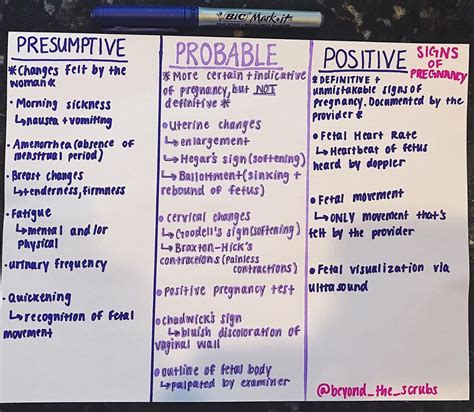 BIC Mark-it
PRESUMPTIVE
*Changes felt by the
woman*
• Morning sickness
↳nausea + vomiting
• Amenorrhea (absence of
menstrual period)
• Breast changes
↳tenderness, firmness
• Fatigue
↳mental and/or
physical
• urinary frequency
• Quickening
↳recognition of fetal
movement
PROBABLE
*More certain + indicative
of pregnancy, but NOT
definitive*
• Uterine changes
↳enlargement
↳Hegar's sign (softening)
↳Ballottment (sinking +
rebound of fetus)
• cervical changes
↳Goodell's sign (softening)
↳Braxton-Hick's
contractions (painless
contractions)
• Positive pregnancy test
• chadwick's sign
↳bluish discoloration of
vaginal wall
• outline of fetal body
↳palpated by examiner
POSITIVE
SIGNS
OF
PREGNANCY
*DEFINITIVE +
unmistakable signs of
Pregnancy. Documented by the
provider*
• Fetal Heart Rate
↳Heartbeat of fetus
heard by doppler
• Fetal movement
↳ONLY movement that's
felt by the provider
• Fetal visualization via
ultrasound
@beyond_the_scrubs